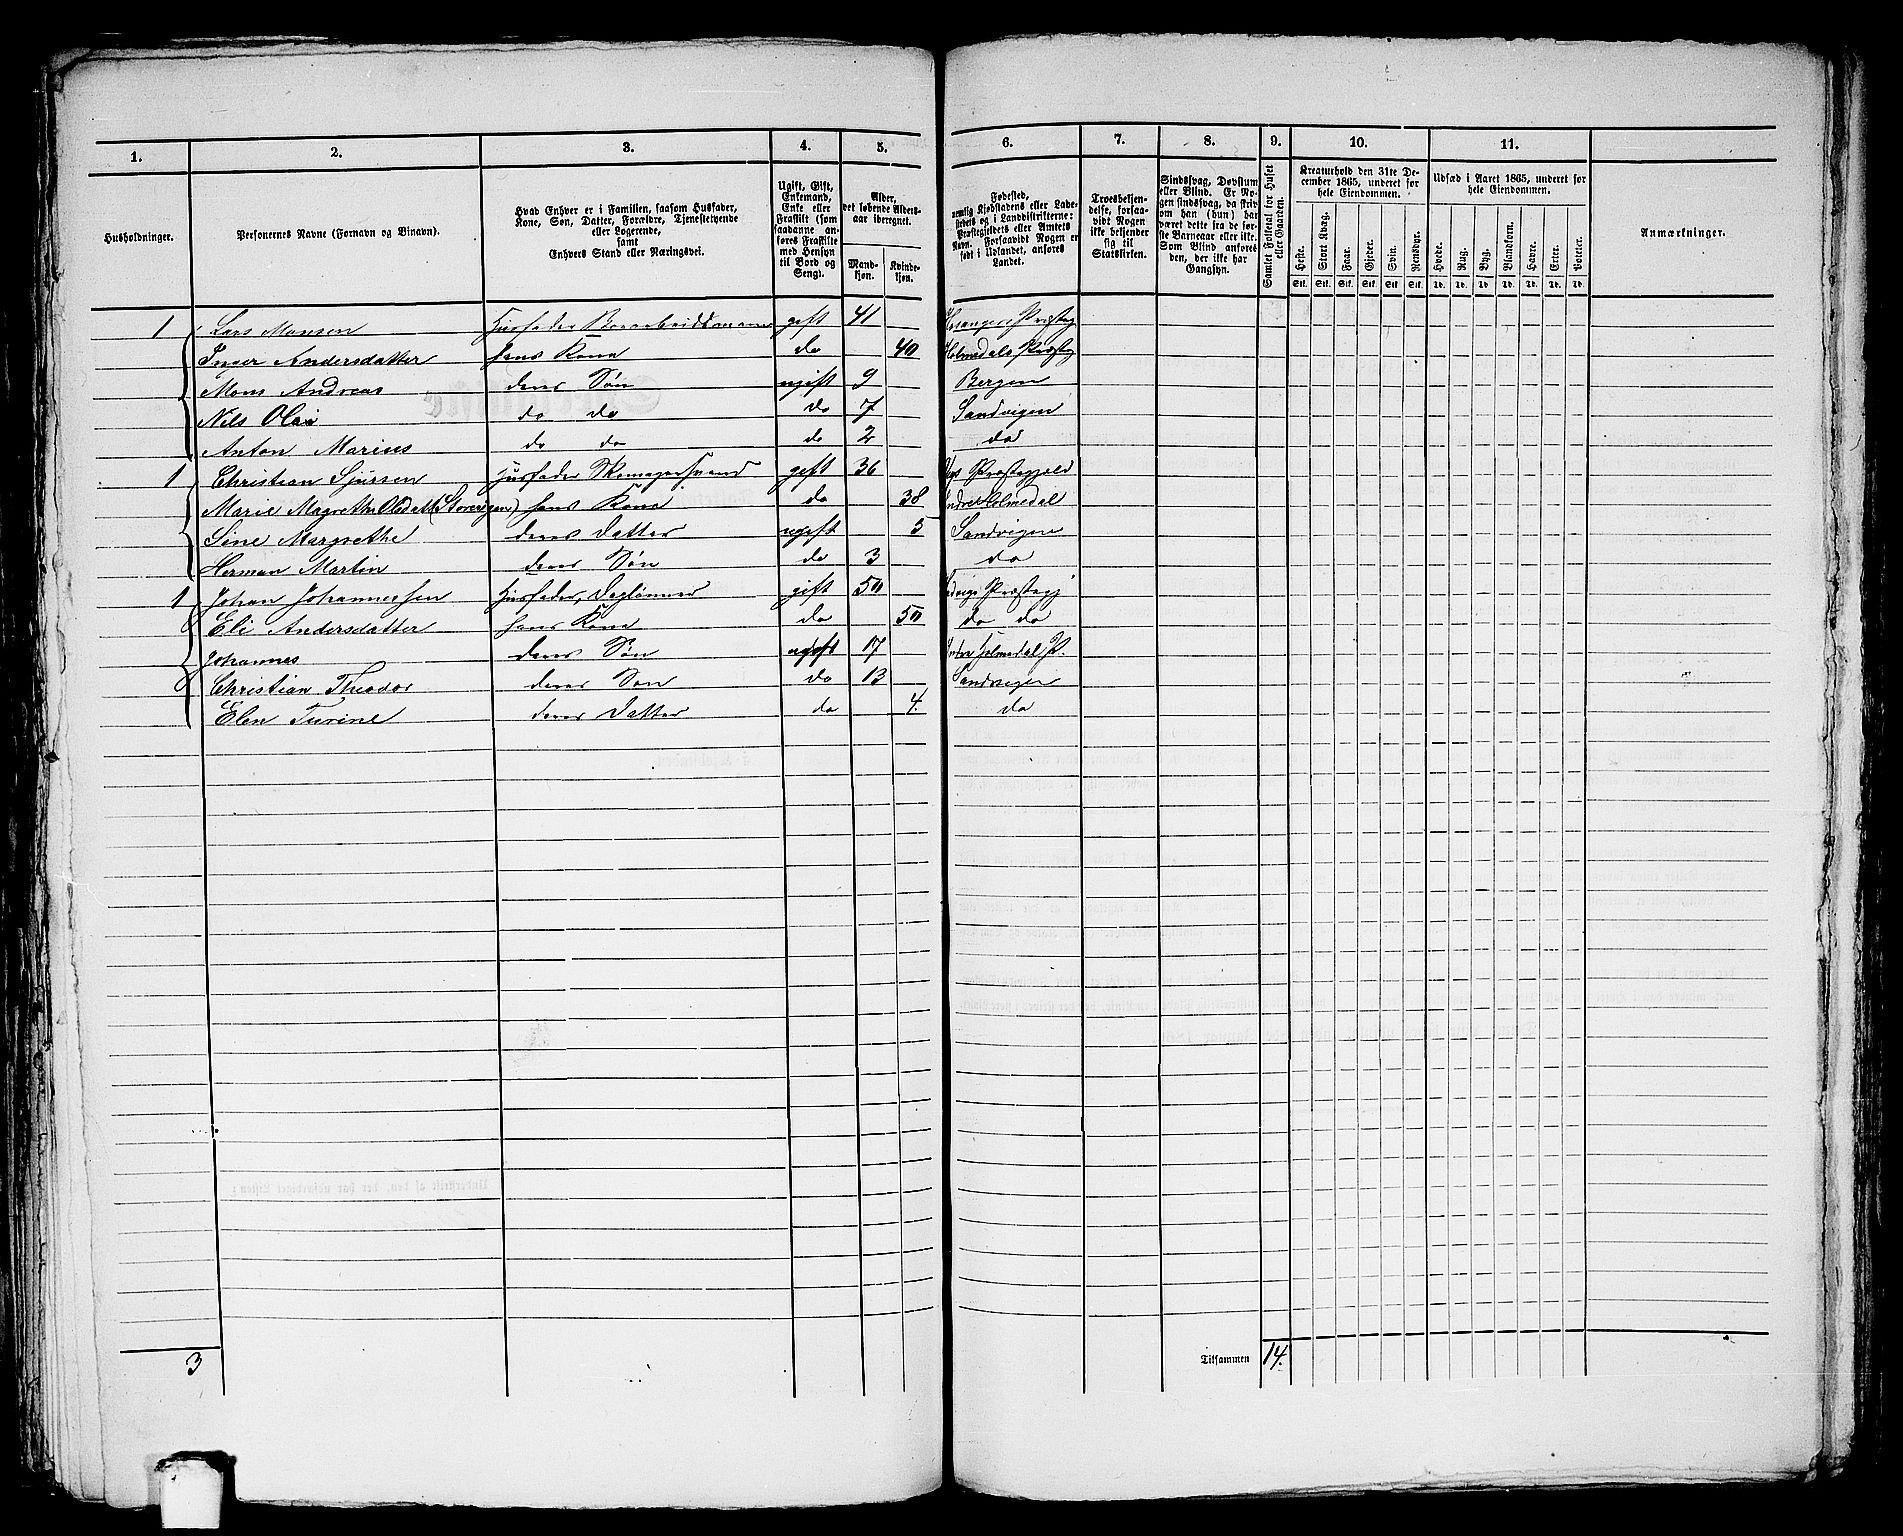 1. 2. 3. 4. 5. 6. 7. 8. 9. 10. 11.
Husholdninger.
Personernes Navne (Fornavn og Binavn).
Hvad Enhver er i Familien, saasom Husfader,
Kone, Søn, Datter, Forældre, Tjenestetyende
eller Logerende,
samt
Enhvers Stand eller Næringsvei.
Ugift, Gift,
Enkemand,
Enke eller
Fraskilt (som
saadanne an-
føres Fraskilte
med Hensyn
til Bord og
Seng).
Alder,
det løbende Alders-
aar iberegnet.
Mand-
kjøn.
Kvinde-
kjøn.
Fødested,
nemlig Kjøbstadens eller Lade-
stedets og i Landdistrikterne:
Præstegjeldets eller Amtets
Navn. Forsaavidt Nogen er
født i Udlandet, anføres
Landet.
Troesbekjen-
delse, forsaa-
vidt Nogen
ikke bekjender
sig til
Statskirken.
Sindssvag, Døvstum
eller Blind. Er No-
gen sindssvag, da skriv
om han (hun) har
været dette fra de før-
ste Barneaar eller ikke.
Som Blind anføres
den, der ikke har
Gangsyn.
Samlet Folketal for Huset
eller Gaarden.
Kreaturhold den 31te De-
cember 1865, underet for
hele Eiendommen.
Heste. Stort Kvæg. Faar. Gjeder. Svin. Rensdyr.
Stk. Stk. Stk. Stk. Stk. Stk.
Udsæd i Aaret 1865, underet for
hele Eiendommen.
Hvede. Rug. Byg. Blandkorn. Havre. Erter. Poteter.
Td. Td. Td. Td. Td. Td. Td.
Anmærkninger.
1 Lars Monsen Husfader gift 41 Præsteg
Inger Andersdatter hans Kone do 40 Holmedals Præsteg
Mons Andreas deres Søn ugift 9 Bergen
Nils Olai do do do 7 Sandvigen
Anton Marius do do do 2 do
1 Christian Sjursen Husfader gift 36 Præstegjeld
Marie Magrethe Olsdatt (Storevigen) hans Kone do 38 Indre Holmedal
Sine Margrethe deres Datter ugift 5 Sandvigen
Herman Martin deres Søn do 3 do
1 Johan Johannessen Husfader, Daglønner gift 50 Præstegj
Eli Andersdatter hans Kone do 50 do do
Johannes deres Søn ugift 17 Indre Holmedal P.
Christian Theodor deres Søn do 13 Sandvigen
Elen Turine deres Datter do 4. do
3
Tilsammen 14.